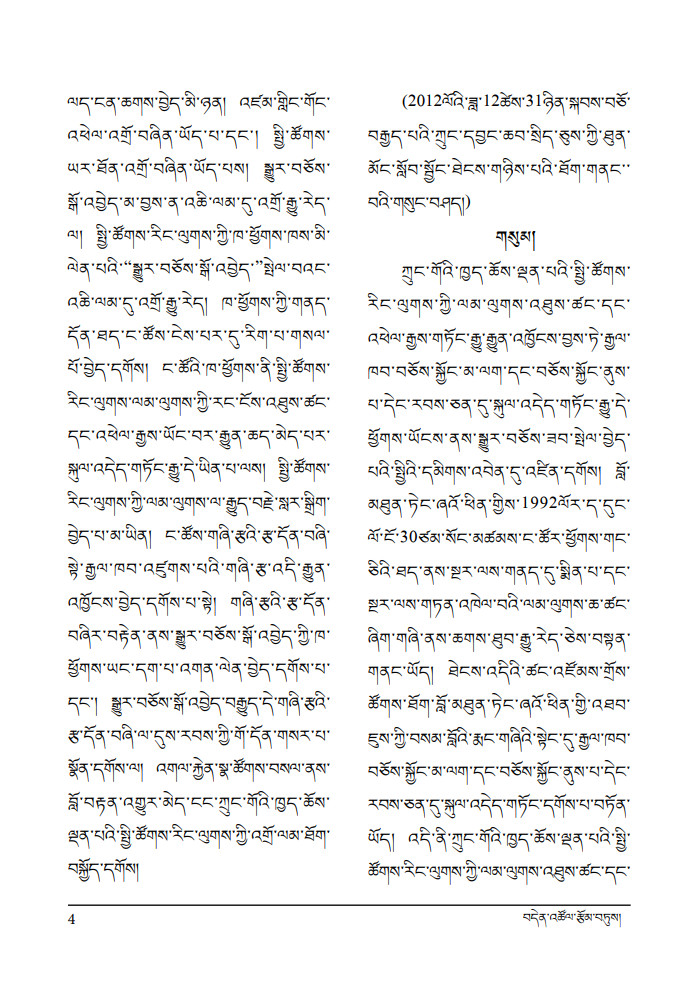 ལད་ངན་ཆགས་བྱེད་མི་ཉན། འཛམ་གླིང་གོང་
འཕེལ་འགྲོ་བཞིན་ཡོད་པ་དང་། སྤྱི་ཚོགས་
ཡར་ཐོན་འགྲོ་བཞིན་ཡོད་པས། སྒྱུར་བཅོས་
སྒོ་འབྱེད་མ་བྱས་ན་འཆི་ལམ་དུ་འགྲོ་རྒྱུ་རེད་
ལ། སྤྱི་ཚོགས་རིང་ལུགས་ཀྱི་ཁ་ཕྱོགས་ཁས་མི་
ལེན་པའི་“སྒྱུར་བཅོས་སྒོ་འབྱེད་”སྤེལ་བའང་
འཆི་ལམ་དུ་འགྲོ་རྒྱུ་རེད། ཁ་ཕྱོགས་ཀྱི་གནད་
དོན་ཐད་ང་ཚོས་ངེས་པར་དུ་རིག་པ་གསལ་
པོ་བྱེད་དགོས། ང་ཚོའི་ཁ་ཕྱོགས་ནི་སྤྱི་ཚོགས་
རིང་ལུགས་ལམ་ལུགས་ཀྱི་རང་ངོས་འཐུས་ཚང་
དང་འཕེལ་རྒྱས་ཡོང་བར་རྒྱུན་ཆད་མེད་པར་
སྐུལ་འདེད་གཏོང་རྒྱུ་དེ་ཡིན་པ་ལས། སྤྱི་ཚོགས་
རིང་ལུགས་ཀྱི་ལམ་ལུགས་ལ་རྒྱུད་བརྗེ་སླར་སྒྲིག་
བྱེད་པ་མ་ཡིན། ང་ཚོས་གཞི་རྩའི་རྩ་དོན་བཞི་
སྟེ་རྒྱལ་ཁབ་འཛུགས་པའི་གཞི་རྩ་འདི་རྒྱུན་
འཁྱོངས་བྱེད་དགོས་པ་སྟེ། གཞི་རྩའི་རྩ་དོན་
བཞིར་བརྟེན་ནས་སྒྱུར་བཅོས་སྒོ་འབྱེད་ཀྱི་ཁ་
ཕྱོགས་ཡང་དག་པ་འགན་ལེན་བྱེད་དགོས་པ་
དང་། སྒྱུར་བཅོས་སྒོ་འབྱེད་བརྒྱུད་དེ་གཞི་རྩའི་
རྩ་དོན་བཞི་ལ་དུས་རབས་ཀྱི་གོ་དོན་གསར་པ་
སྣོན་དགོས་ལ། འགལ་རྐྱེན་སྣ་ཚོགས་བསལ་ནས་
བློ་བརྟན་འགྱུར་མེད་ངང་ཀྲུང་གོའི་ཁྱད་ཆོས་
ལྡན་པའི་སྤྱི་ཚོགས་རིང་ལུགས་ཀྱི་འགྲོ་ལམ་ཐོག་
བསྐྱོད་དགོས།
(2012ལོའི་ཟླ་12ཚེས་31ཉིན་སྐབས་བཅོ་
བརྒྱད་པའི་ཀྲུང་དབྱང་ཆབ་སྲིད་ཅུས་ཀྱི་ཐུན་
མོང་སློབ་སྦྱོང་ཐེངས་གཉིས་པའི་ཐོག་གནང་་
བའི་གསུང་བཤད།)
གསུམ།
ཀྲུང་གོའི་ཁྱད་ཆོས་ལྡན་པའི་སྤྱི་ཚོགས་
རིང་ལུགས་ཀྱི་ལམ་ལུགས་འཐུས་ཚང་དང་
འཕེལ་རྒྱས་གཏོང་རྒྱུ་རྒྱུན་འཁྱོངས་བྱས་ཏེ་རྒྱལ་
ཁབ་བཅོས་སྐྱོང་མ་ལག་དང་བཅོས་སྐྱོང་ནུས་
པ་དེང་རབས་ཅན་དུ་སྐུལ་འདེད་གཏོང་རྒྱུ་དེ་
ཕྱོགས་ཡོངས་ནས་སྒྱུར་བཅོས་ཟབ་སྤེལ་བྱེད་
པའི་སྤྱིའི་དམིགས་འབེན་དུ་འཛིན་དགོས། བློ་
མཐུན་ཏེང་ཞའོ་ཕིན་གྱིས་1992ལོར་ད་དུང་
ལོ་ངོ་30ཙམ་སོང་མཚམས་ང་ཚོར་ཕྱོགས་གང་
ཅིའི་ཐད་ནས་སྔར་ལས་གནད་དུ་སྨིན་པ་དང་
སྔར་ལས་གཏན་འཁེལ་བའི་ལམ་ལུགས་ཆ་ཚང་
ཞིག་གཞི་ནས་ཆགས་ཐུབ་རྒྱུ་རེད་ཅེས་བསྟན་
གནང་ཡོད། ཐེངས་འདིའི་ཚང་འཛོམས་གྲོས་
ཚོགས་ཐོག་བློ་མཐུན་ཏེང་ཞའོ་ཕིན་གྱི་འཐབ་
ཇུས་ཀྱི་བསམ་བློའི་རྨང་གཞིའི་སྟེང་དུ་རྒྱལ་ཁབ་
བཅོས་སྐྱོང་མ་ལག་དང་བཅོས་སྐྱོང་ནུས་པ་དེང་
རབས་ཅན་དུ་སྐུལ་འདེད་གཏོང་དགོས་པ་བཏོན་
ཡོད། འདི་ནི་ཀྲུང་གོའི་ཁྱད་ཆོས་ལྡན་པའི་སྤྱི་
ཚོགས་རིང་ལུགས་ཀྱི་ལམ་ལུགས་འཐུས་ཚང་དང་
4
བདེན་འཚོལ་རྩོམ་བཏུས།